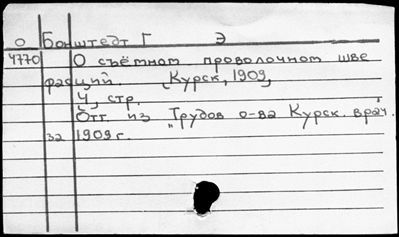 О Бонштедт Г Э
4770 О съёмном проволочном шве
фасций. Курск, 1909,
4, стр.
Отт. из „Трудов о-ва Курск. врач.
за 1909 г.